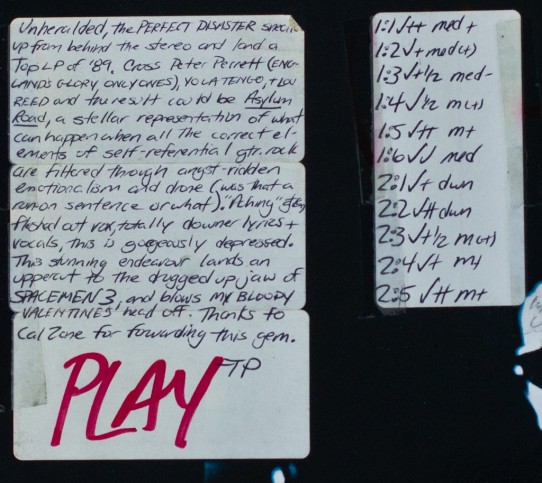 Unheralded, the PERFECT DISASTER
up from behind the stereo and land a
Top LP of '89. Cross Peter Perrett (ENG-
LAND'S GLORY, ONLY ONES), YO LA TENGO, + LOU
REED and the result could be Asylum
Road, a stellar representation of what
can happen when all the correct el-
ements of self-referential gtr. rock
are filtered through angst-ridden
emotionalism and drone (was that a
run-on sentence or what). "Aching" gtrs,
vox, totally downer lyrics +
vocals, this is gorgeously depressed.
This stunning endeavour lands an
uppercut to the drugged up jaw of
SPACEMEN 3, and blows MY BLOODY
VALENTINES' head off. Thanks to
Cal Zone for forwarding this gem.
FTP
PLAY
1:1 √++ med +
1:2 √+ med(+)
1:3 √+1/2 med-
1:4 √1/2 m(+)
1:5 √++ m+
1:6 √√ med
2:1 √+ dwn
2:2 √++ dwn
2:3 √+1/2 m(+)
2:4 √+ m+
2:5 √++ m+